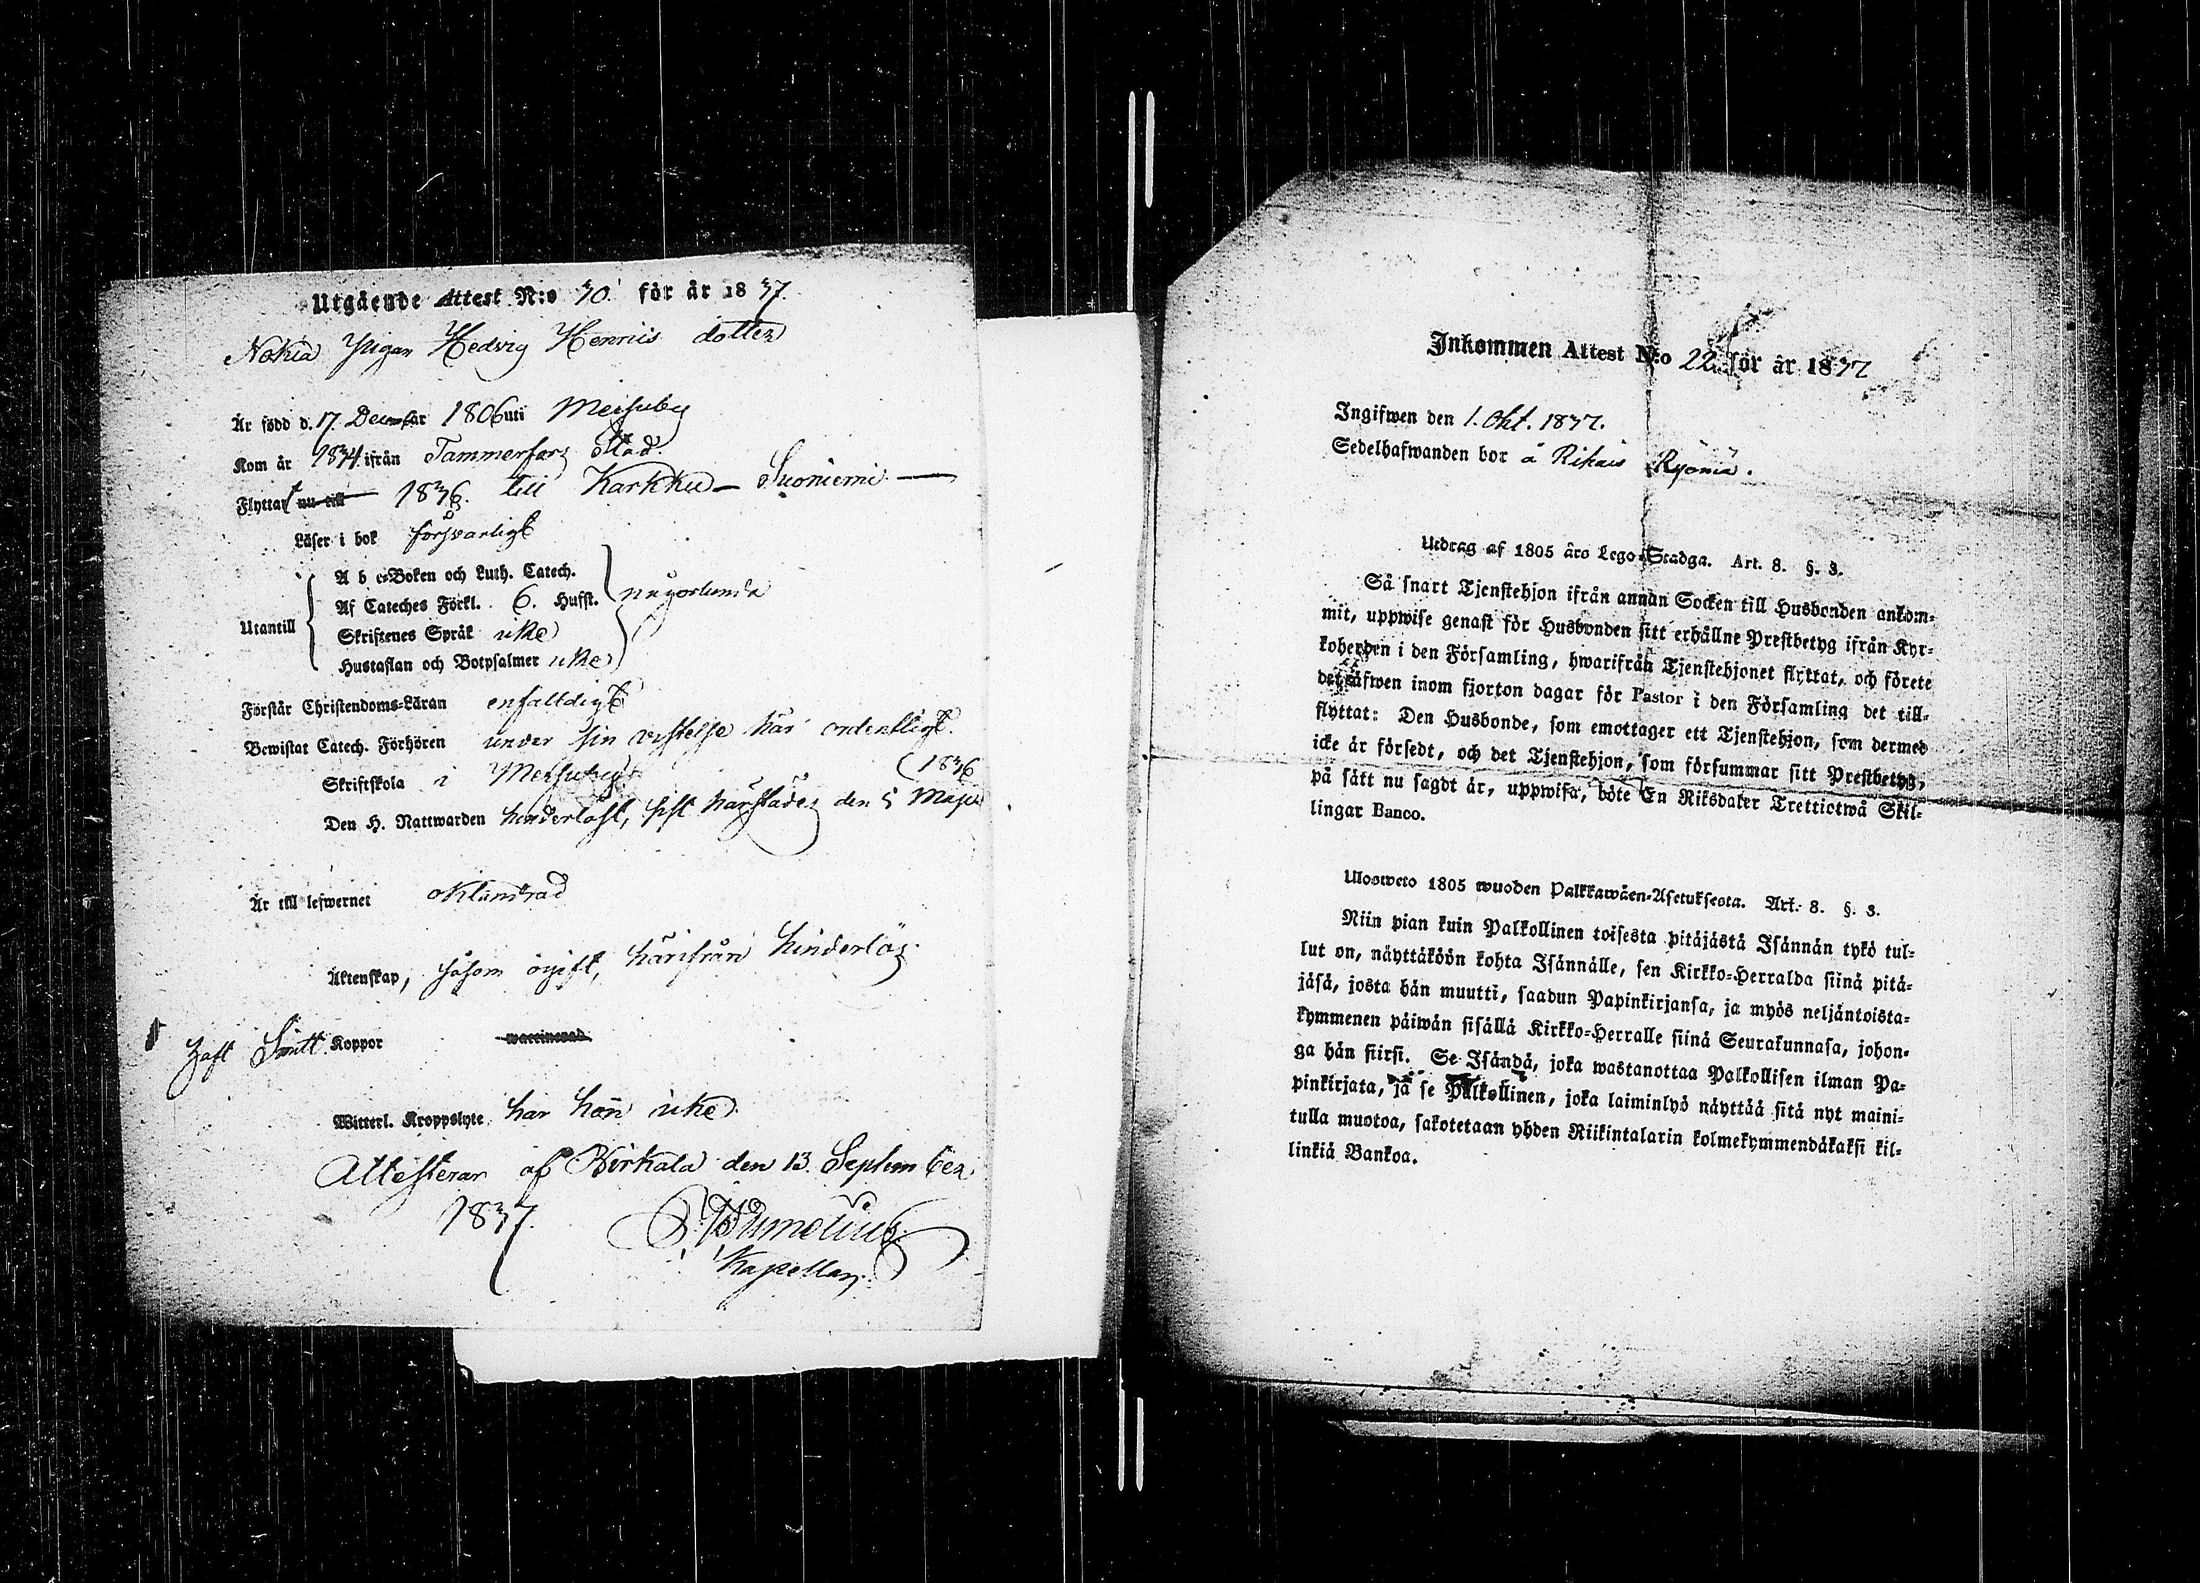 Utgående Attest N:o 30. för år 1837.
Nokia Pigan Hedvig Henriks dotter
Är född d. 17 December 1806 uti Messuby
Kom år 1834 ifrån Tammerfors Stad.
Flyttat nu till 1836. till Karkku – Suoniemi –
Läser i bok försvarligt
A b c-Boken och Luth. Catech.
Af Cateches Förkl. 6. Hufst. någorlunda
Utantill
Skriftenes Språk icke
Hustaflan och Botpsalmer icke
Förstår Christendoms-Läran enfaldigt
Bewistat Catech. Förhören under sin vistelse här ordentligt.
Skriftskola i Messuby
(1836
Den H. Nattwarden hinderlöst, sist härstädes den 5 Maji
Är till lefwernet oklandrad
Äktenskap, såsom ogift, härifrån hinderlös.
Haft Smitt Koppor waccinerad
Witterl. Kroppslyte har hon icke
Attesterar af Birkala den 13. September
1837.
Kapellan.
Inkommen Attest N:o 22. för år 1837
Ingifwen den 1. Okt. 1837.
Sedelhafwanden bor å Rikais Ryömä.
Utdrag af 1805 års Lego-Stadga. Art. 8. §. 3.
Så snart Tjenstehjon ifrån annan Socken till Husbonden ankom-
mit, uppwise genast för Husbonden sitt erhållne Prestbetyg ifrån Kyr-
koherden i den Församling, hwarifrån Tjenstehjonet flyttat, och förete
det äfwen inom fjorton dagar för Pastor i den Församling det till-
flyttat: Den Husbonde, som emottager ett Tjenstehjon, som dermed
icke är försedt, och det Tjenstehjon, som försummar sitt Prestbetyg,
på sätt nu sagdt är, uppwisa, böte En Riksdaler Trettiotwå Skil-
lingar Banco.
Ulosweto 1805 wuoden Palkkawäen-Asetuksesta. Art. 8. §. 3.
Niin pian kuin Palkollinen toisesta pitäjästä Isännän tykö tul-
lut on, näyttäköön kohta Isännälle, sen Kirkko-Herralda siinä pitä-
jäsä, josta hän muutti, saadun Papinkirjansa, ja myös neljäntoista-
kymmenen päiwän sisällä Kirkko-Herralle siinä Seurakunnasa, johon-
ga hän siirsi. Se Isändä, joka wastanottaa Palkollisen ilman Pa-
pinkirjata, ja se Palkollinen, joka laiminlyö näyttää sitä nyt maini-
tulla muotoa, sakotetaan yhden Riikintalarin kolmekymmendäkaksi kil-
linkiä Bankoa.